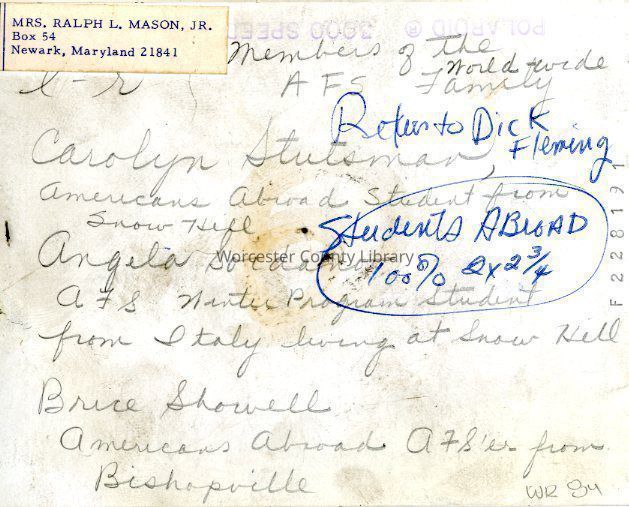 MRS. RALPH L. MASON, JR.
Box 54
Newark, Maryland 21841
POLAROID ® 3000 SPEED
Members of the
World-wide
l-r AFS Family
Return to Dick
Fleming
Carolyn Stutsman,
Americans Abroad Student from
Snow Hill
Students ABROAD
100% 2x2 3/4
Angela
Worcester County Library
AFS Winter Program Student
from Italy living at Snow Hill
F228191
Brice Showell
Americans Abroad AFS'er from
Bishopville
WR 84